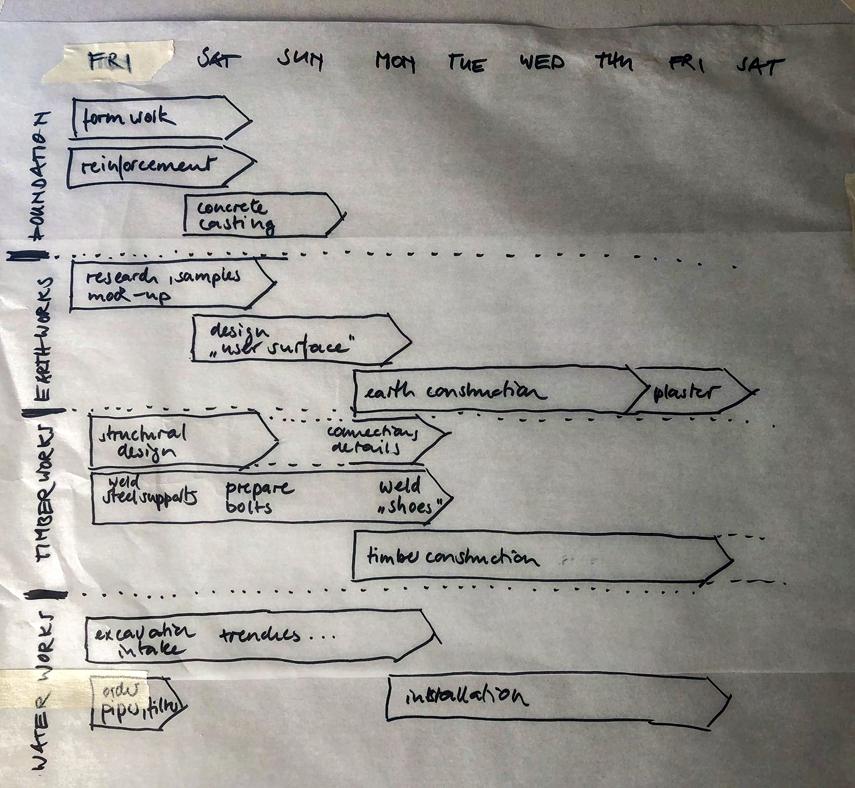 FRI SAT SUN MON TUE WED THU FRI SAT
FOUNDATION
formwork
reinforcement
concrete
casting
EARTHWORKS
research, samples
mock-up
design
„user surface"
earth construction
plaster
TIMBERWORKS
structural
design
connections
details
weld
steel supports
prepare
bolts
weld
„shoes"
timber construction
WATER WORKS
excavation
intake
trenches ...
order
installation